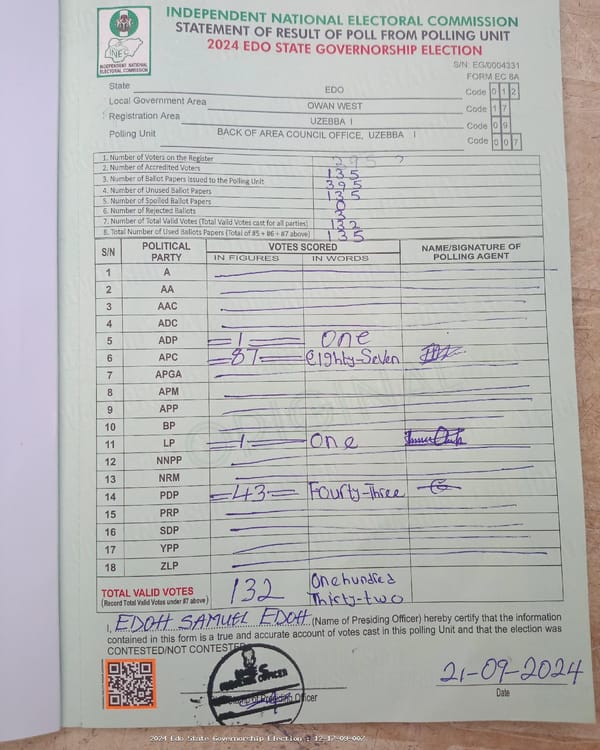 INDEPENDENT NATIONAL ELECTORAL COMMISSION
STATEMENT OF RESULT OF POLL FROM POLLING UNIT
2024 EDO STATE GOVERNORSHIP ELECTION
INEC
INDEPENDENT NATIONAL ELECTORAL COMMISSION
S/N: EG/0004331
FORM EC 8A
State EDO Code 0 1 2
Local Government Area OWAN WEST Code 1 7
Registration Area UZEBBA I Code 0 9
Polling Unit BACK OF AREA COUNCIL OFFICE, UZEBBA I Code 0 0 7
1. Number of Voters on the Register
2. Number of Accredited Voters 135
3. Number of Ballot Papers issued to the Polling Unit 395
4. Number of Unused Ballot Papers 135
5. Number of Spoiled Ballot Papers 0
6. Number of Rejected Ballots 3
7. Number of Total Valid Votes (Total Valid Votes cast for all parties) 132
8. Total Number of Used Ballots Papers (Total of #5 + #6 + #7 above) 135
S/N POLITICAL PARTY VOTES SCORED NAME/SIGNATURE OF POLLING AGENT
IN FIGURES IN WORDS
1 A
2 AA
3 AAC
4 ADC
5 ADP 1 One
6 APC 87 Eighty-Seven
7 APGA
8 APM
9 APP
10 BP
11 LP 1 One
12 NNPP
13 NRM
14 PDP 43 Fourty-Three
15 PRP
16 SDP
17 YPP
18 ZLP
ORIGINAL
TOTAL VALID VOTES 132 One hundred
(Record Total Valid Votes under #7 above) Thirty-two
I, EDOH SAMUEL EDOH (Name of Presiding Officer) hereby certify that the information
contained in this form is a true and accurate account of votes cast in this polling Unit and that the election was
CONTESTED/NOT CONTESTED
21-09-2024
Officer Date
2024 Edo State Governorship Election : 12-17-09-007